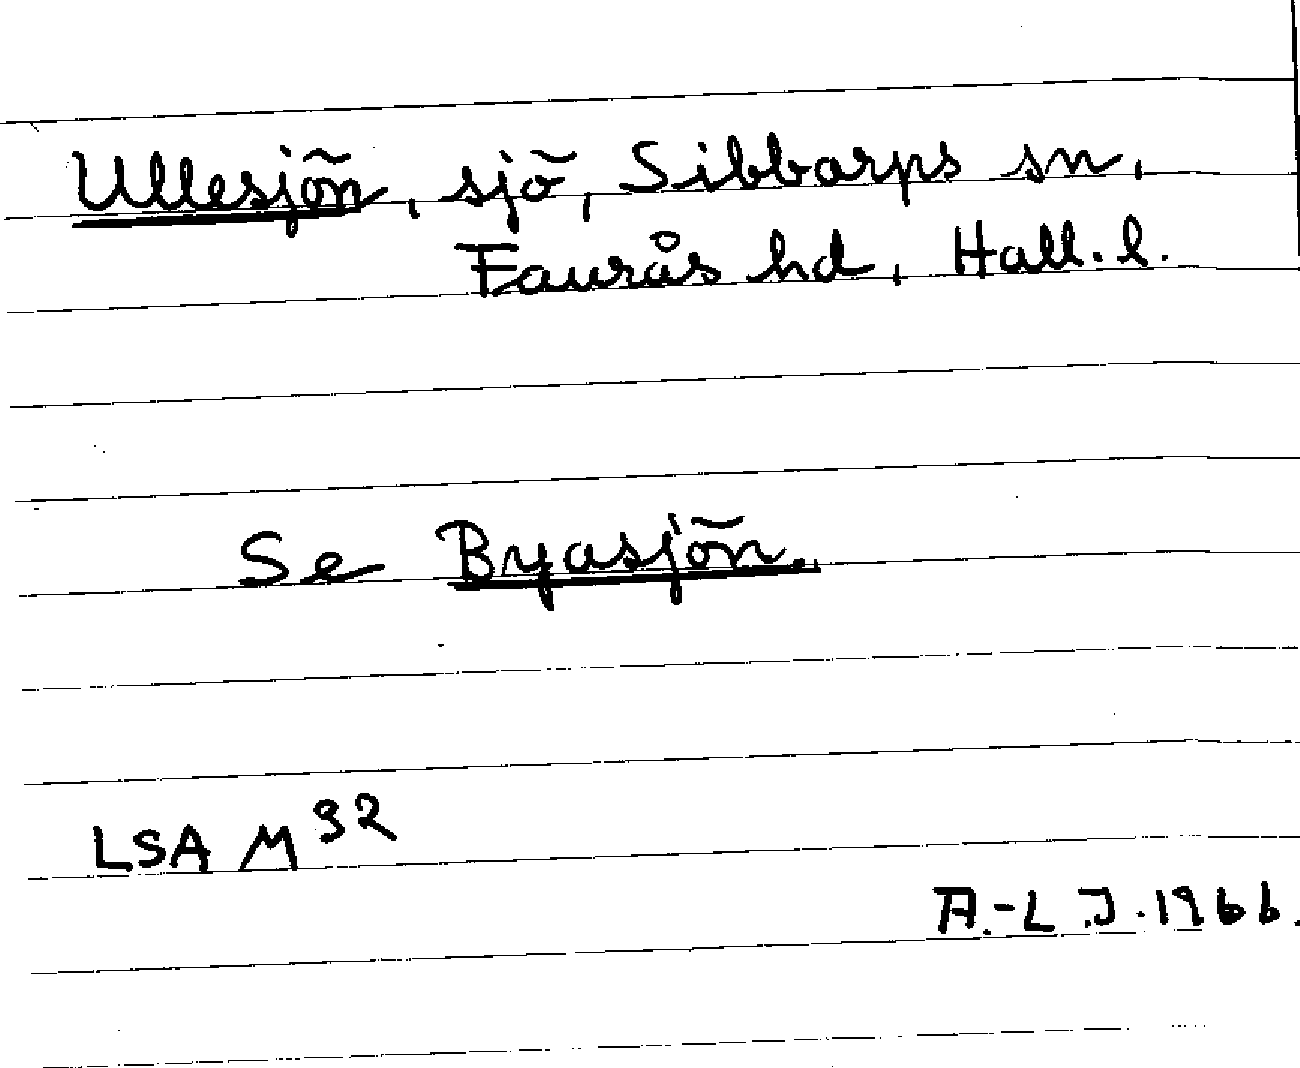 Ullesjön, sjö, Sibbarps sn,
Faurås hd, Hall. l.
Se Byasjön.
LSA M 32
A.-L J. 1966.